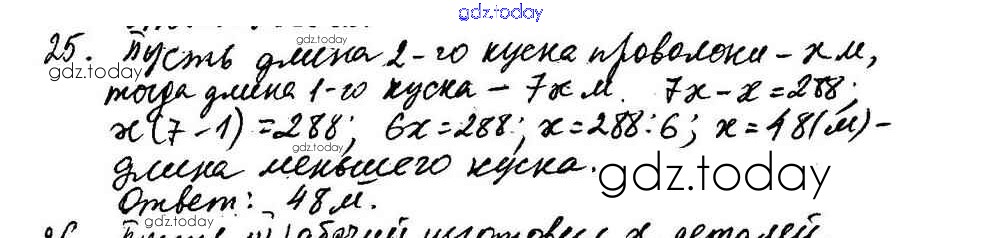 gdz.today
25. Пусть длина 2-го куска проволоки - x м,
gdz.today
gdz.today
тогда длина 1-го куска - 7x м. 7x - x = 288;
x(7-1) = 288; 6x = 288; x = 288:6; x = 48 (м) -
gdz.today
длина меньшего куска.
gdz.today
Ответ: 48 м.
gdz.today